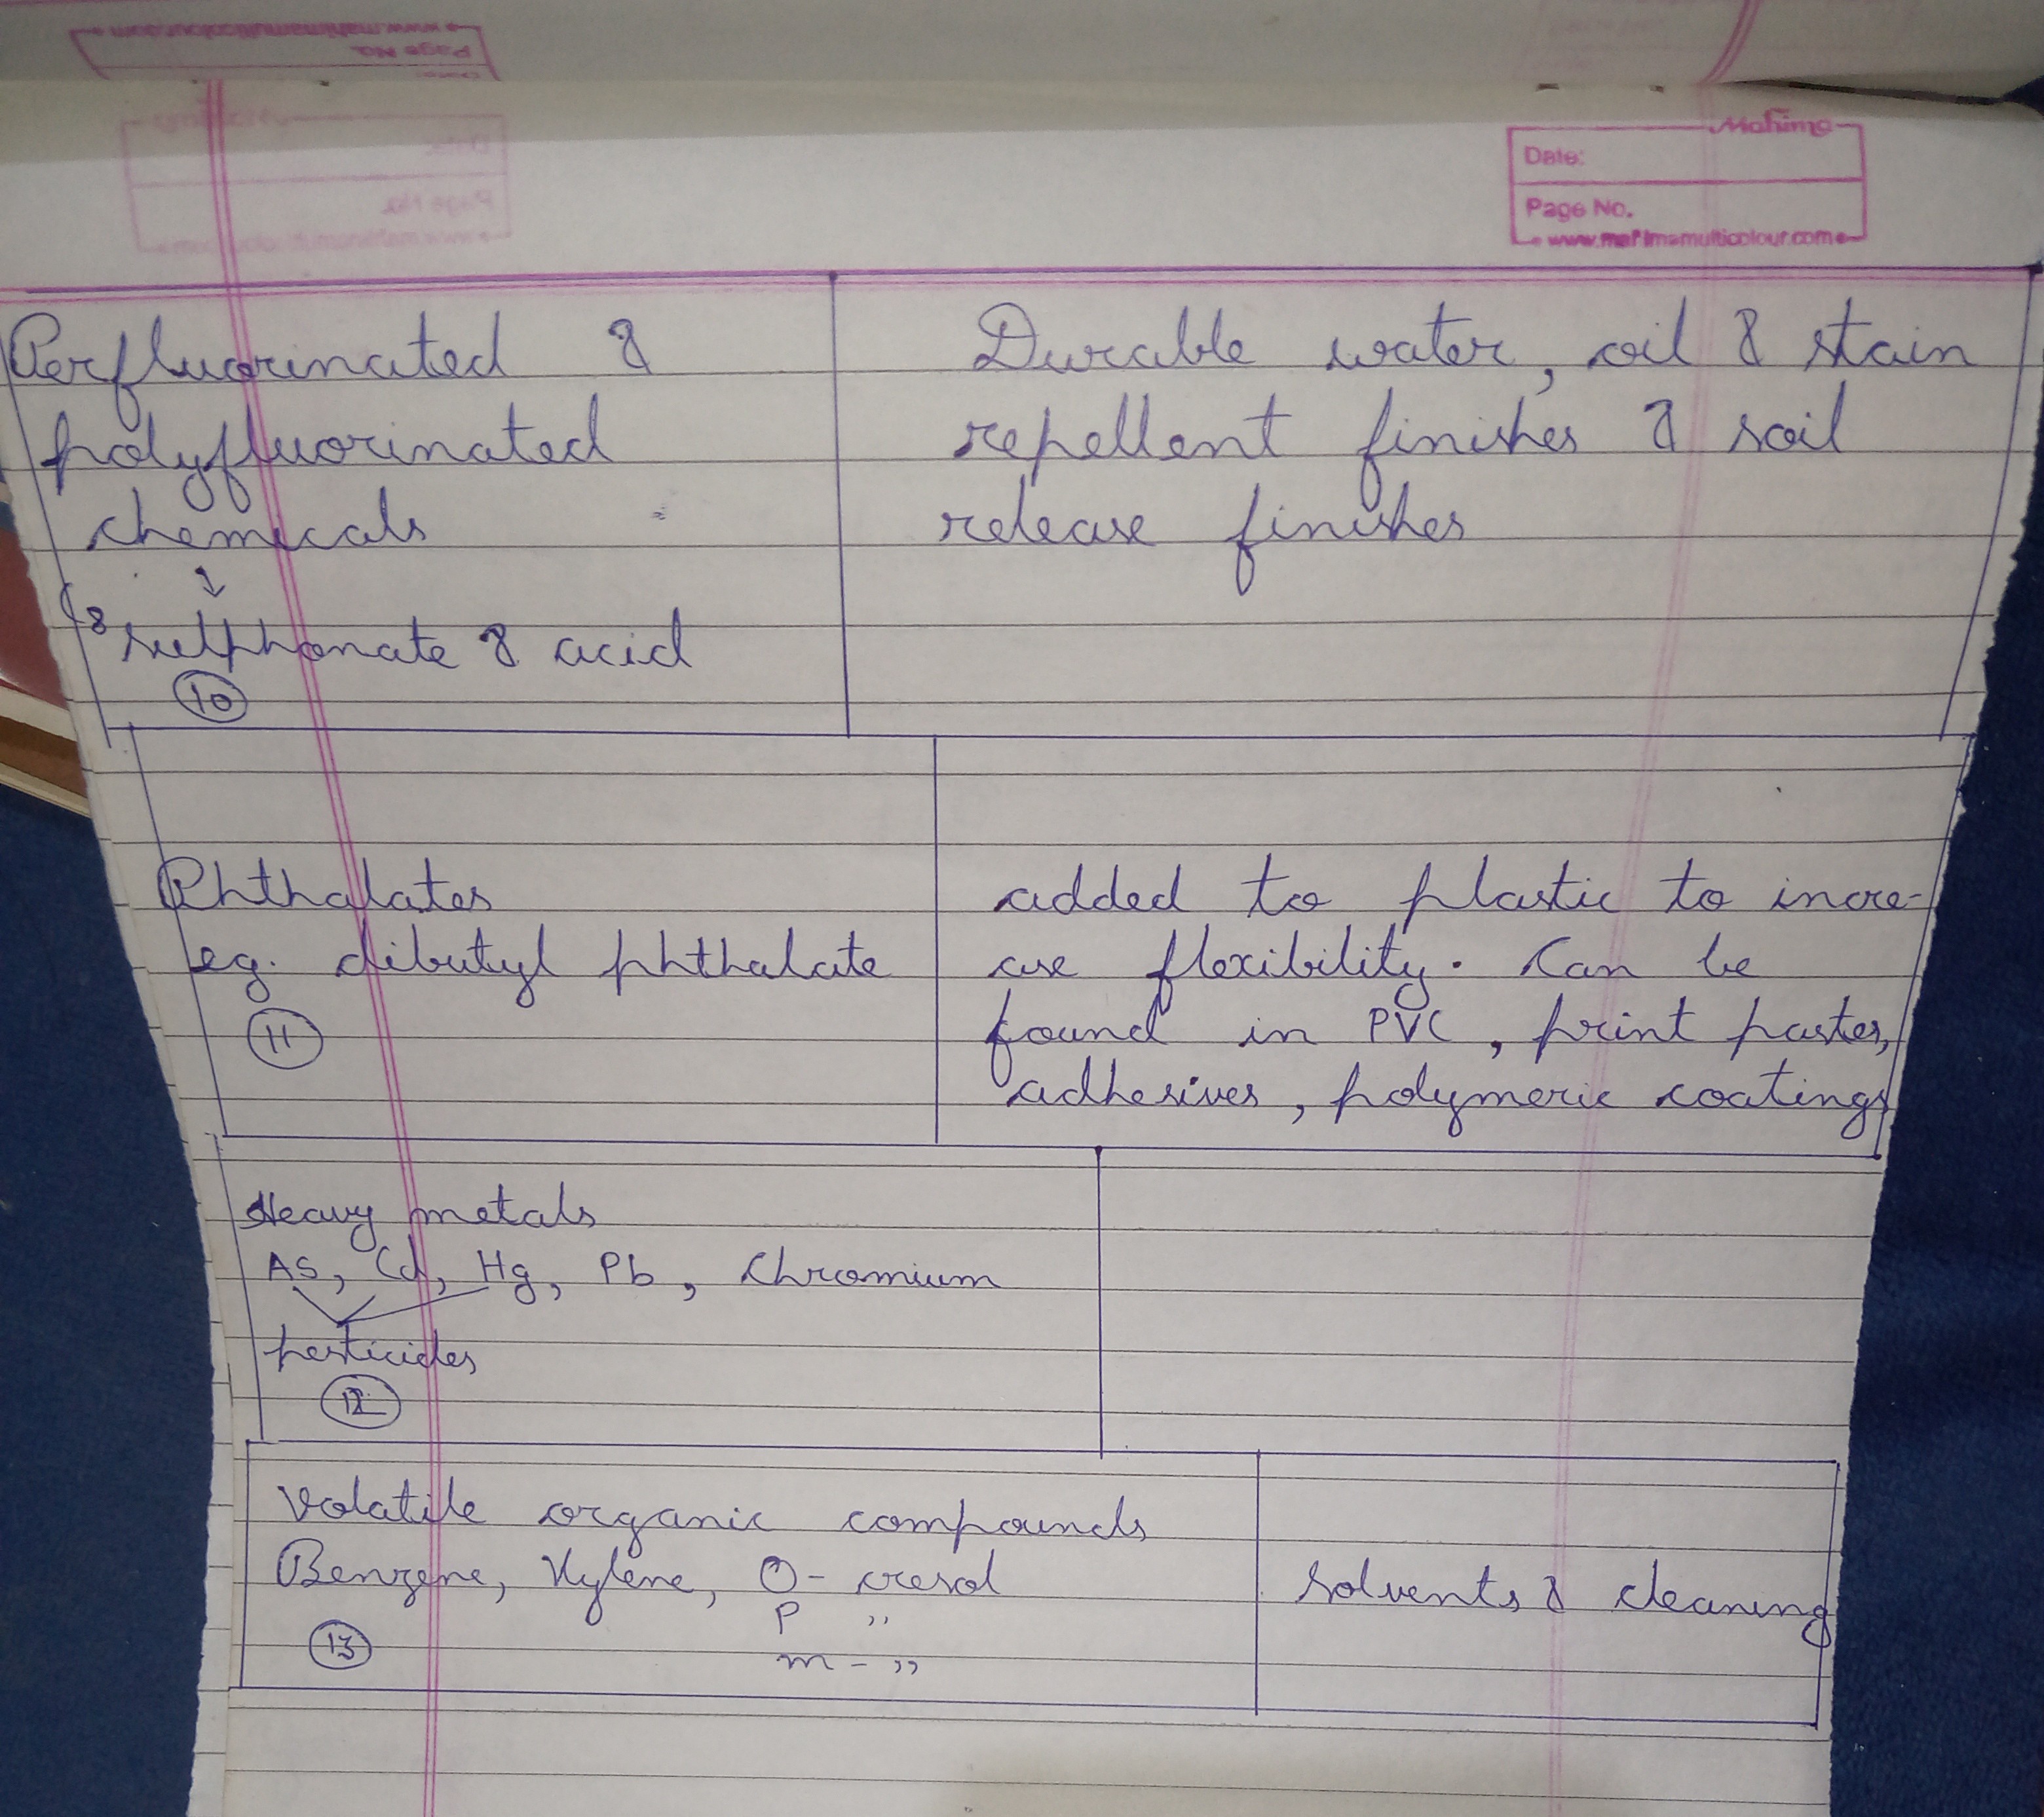 www.mahimamulticolour.com
Page No.
Mahima
Date:
Page No.
www.mahimamulticolour.com
Perfluorinated &
polyfluorinated
chemicals
↓
C8 sulphonate & acid
10
Durable water, oil & stain
repellent finishes & soil
release finishes
Phthalates
eg. dibutyl phthalate
11
added to plastic to incre-
ase flexibility. Can be
found in PVC, print pastes,
adhesives, polymeric coatings
Heavy metals
As, Cd, Hg, Pb, Chromium
pesticides
12
Volatile organic compounds
Benzene, Xylene, O- cresol
P ,,
m - ,,
13
Solvents & cleaning